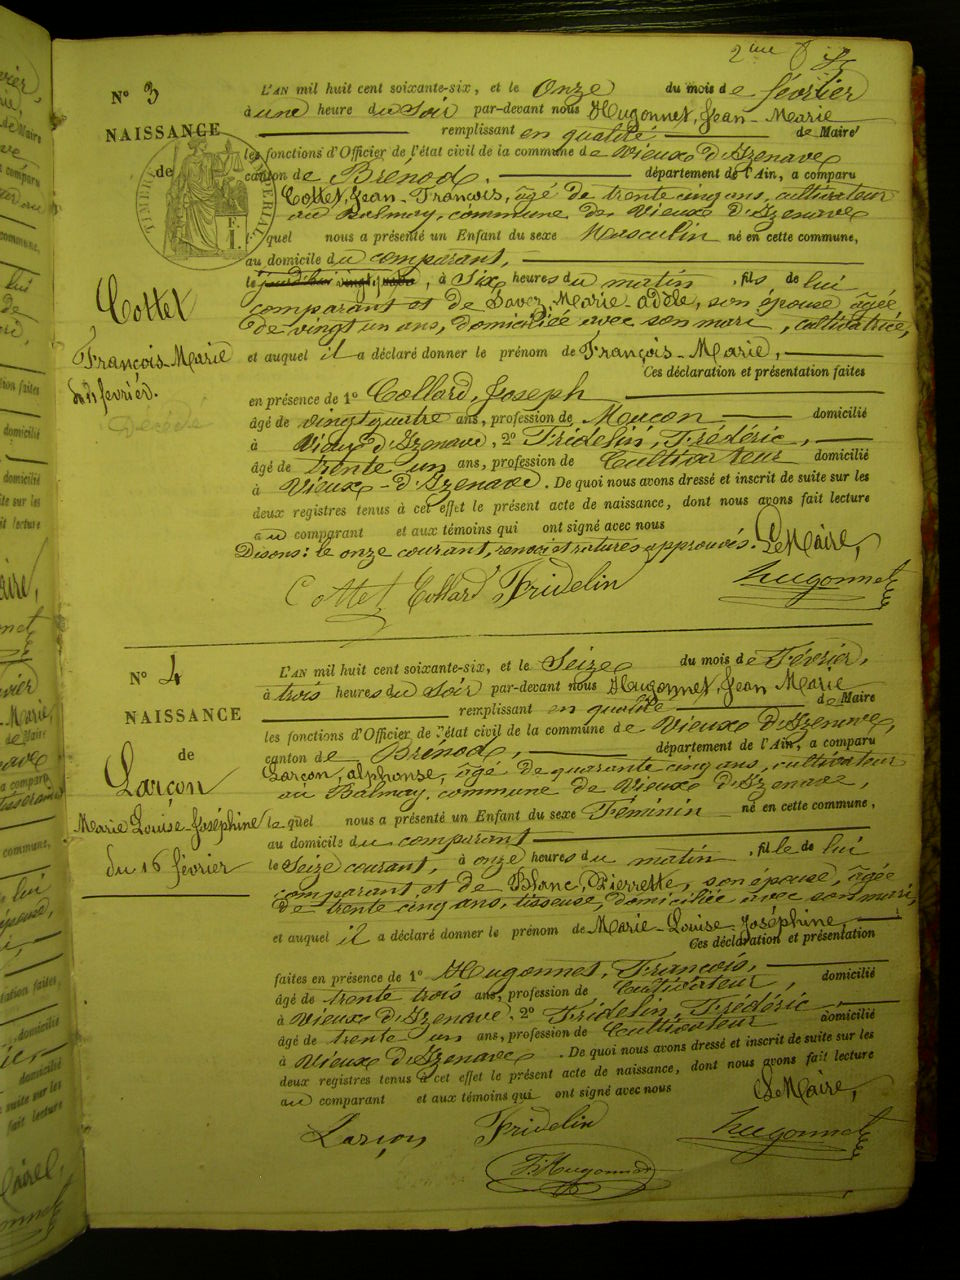 2me
N° 3
NAISSANCE
de
TIMBRE IMPÉRIAL
F.
1.
Cottet
François-Marie
du 11 février.
Décédé
L'AN mil huit cent soixante-six, et le Onze du mois de février
à une heure du Soir par-devant nous Hugonnet, Jean-Marie
remplissant en qualité de Maire
les fonctions d'Officier de l'état civil de la commune de Vieux d'Izenave
canton de Brénod, département de l'Ain, a comparu
Cottet, Jean-François, âgé de trente cinq ans, cultivateur
au Balmay, commune de Vieux d'Izenave
lequel nous a présenté un Enfant du sexe Masculin né en cette commune,
au domicile du comparant,
le , à Six heures du matin, fils de lui
comparant et de Savez, Marie-adèle, son épouse âgée
de vingt un ans, domiciliée avec son mari, cultivatrice,
et auquel il a déclaré donner le prénom de François-Marie,
Ces déclaration et présentation faites
en présence de 1° Collard, Joseph
âgé de vingt quatre ans, profession de Maçon domicilié
à Vieux d'Izenave, 2° Fridelin, Frédéric,
âgé de trente un ans, profession de Cultivateur domicilié
à Vieux-d'Izenave. De quoi nous avons dressé et inscrit de suite sur les
deux registres tenus à cet effet le présent acte de naissance, dont nous avons fait lecture
au comparant et aux témoins qui ont signé avec nous
Disons: le onze courant, renvoi et ratures approuvés. Le Maire,
Cottet Collard Fridelin Hugonnet
N° 4
NAISSANCE
de
Larçon
Marie Louise-Joséphine
du 16 février
L'AN mil huit cent soixante-six, et le Seize du mois de Février,
à trois heures du Soir par-devant nous Hugonnet, Jean Marie
remplissant en qualité de Maire
les fonctions d'Officier de l'état civil de la commune de Vieux d'Izenave,
canton de Brénod, département de l'Ain, a comparu
Larçon, alphonse, âgé de quarante cinq ans, cultivateur
au Balmay, commune de Vieux d'Izenave,
lequel nous a présenté un Enfant du sexe Féminin né en cette commune,
au domicile du comparant
le Seize courant, à onze heures du matin, fille de lui
comparant, et de Blanc, Pierrette, son épouse, âgée
de trente cinq ans, tisseuse, domiciliée avec son mari,
et auquel il a déclaré donner le prénom de Marie-Louise-Joséphine,
Ces déclaration et présentation
faites en présence de 1° Hugonnet, François, domicilié
âgé de trente trois ans, profession de Cultivateur
à Vieux d'Izenave, 2° Fridelin, Frédéric
âgé de trente un ans, profession de Cultivateur domicilié
à Vieux d'Izenave. De quoi nous avons dressé et inscrit de suite sur les
deux registres tenus à cet effet le présent acte de naissance, dont nous avons fait lecture
au comparant et aux témoins qui ont signé avec nous
Le Maire,
Larçon Fridelin Hugonnet